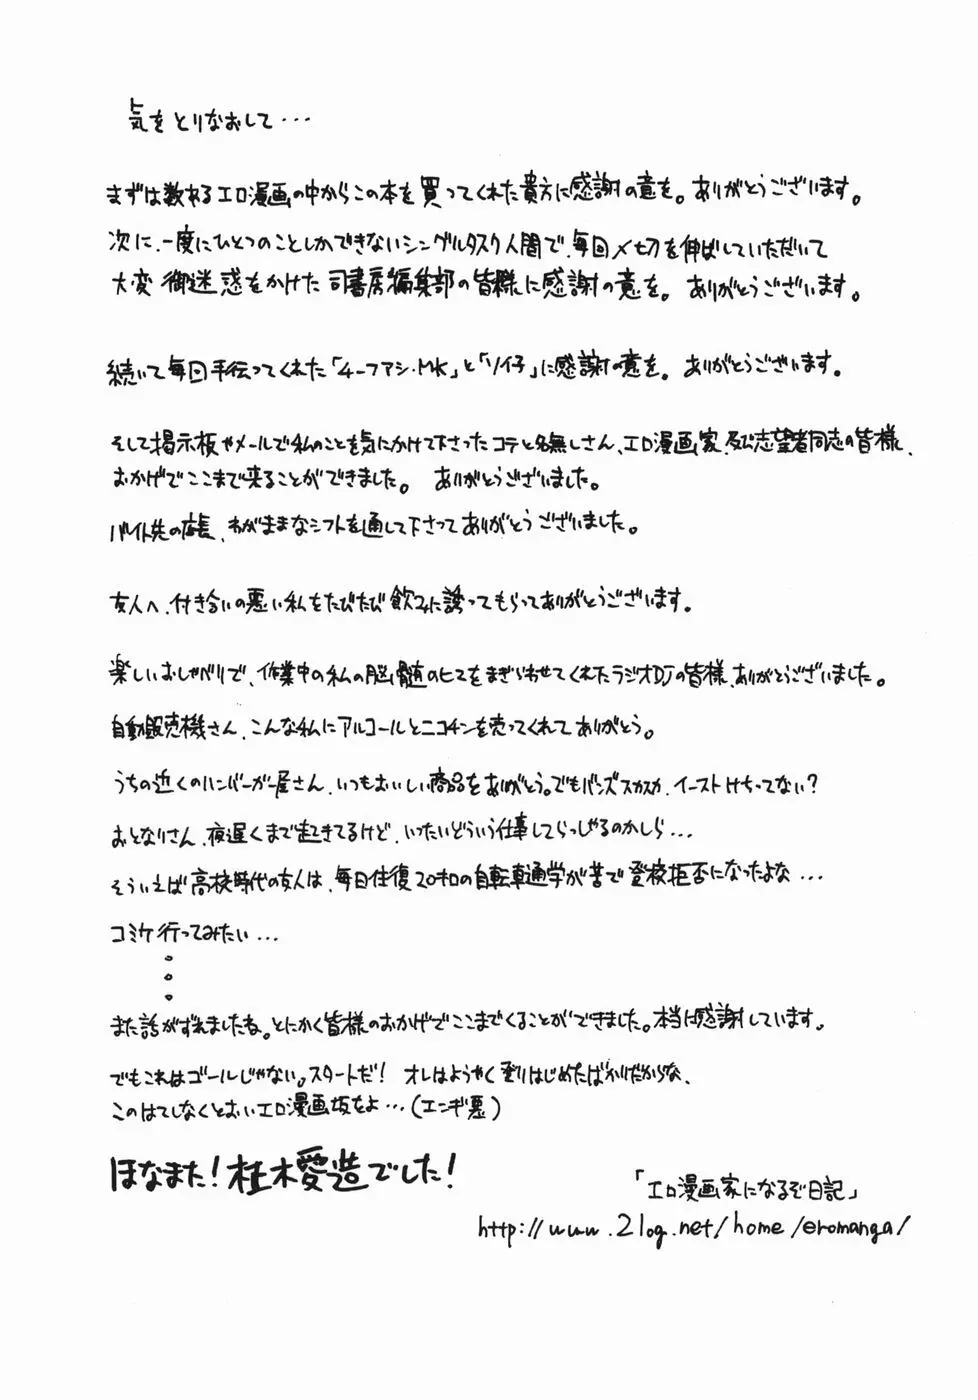 気をとりなおして・・・
まずは数あるエロ漫画の中からこの本を買ってくれた貴方に感謝の意を。ありがとうございます。
次に、一度にひとつのことしかできないシングルタスク人間で、毎回〆切を伸ばしていただいて
大変御迷惑をかけた司書房編集部の皆様に感謝の意を。ありがとうございます。
続いて毎回手伝ってくれた「4-ファシ・MK」と「ソ仔」に感謝の意を。ありがとうございます。
そして掲示板やメールで私のことを気にかけて下さったコテと名無しさん、エロ漫画家、及び志望者同志の皆様、
おかげでここまで来ることができました。ありがとうございました。
バイト先の店長、わがままなシフトを通して下さってありがとうございました。
友人へ、付き合いの悪い私をたびたび飲みに誘ってもらってありがとうございます。
楽しいおしゃべりで、作業中の私の脳髄のヒマをまぎらわせてくれたラジオDJの皆様、ありがとうございました。
自動販売機さん、こんな私にアルコールとニコチンを売ってくれてありがとう。
うちの近くのハンバーガー屋さん、いつもおいしい商品をありがとう。でもバンズスカスカ、イーストけちってない?
おとなりさん、夜遅くまで起きてるけど、いったいどういう仕事してらっしゃるのかしら・・・
そういえば高校時代の友人は、毎日往復20キロの自転車通学が苦で登校拒否になったよな・・・
コミケ行ってみたい・・・
。
。
。
また話がずれましたね。とにかく皆様のおかげでここまでくることができました。本当に感謝しています。
でもこれはゴールじゃない。スタートだ! オレはようやく登りはじめたばかりだからな、
このはてしなくとおいエロ漫画坂をよ・・・(エンギ悪)
ほなまた!柱木愛造でした!
「エロ漫画家になるぞ日記」
http://www.2log.net/home/eromanga/